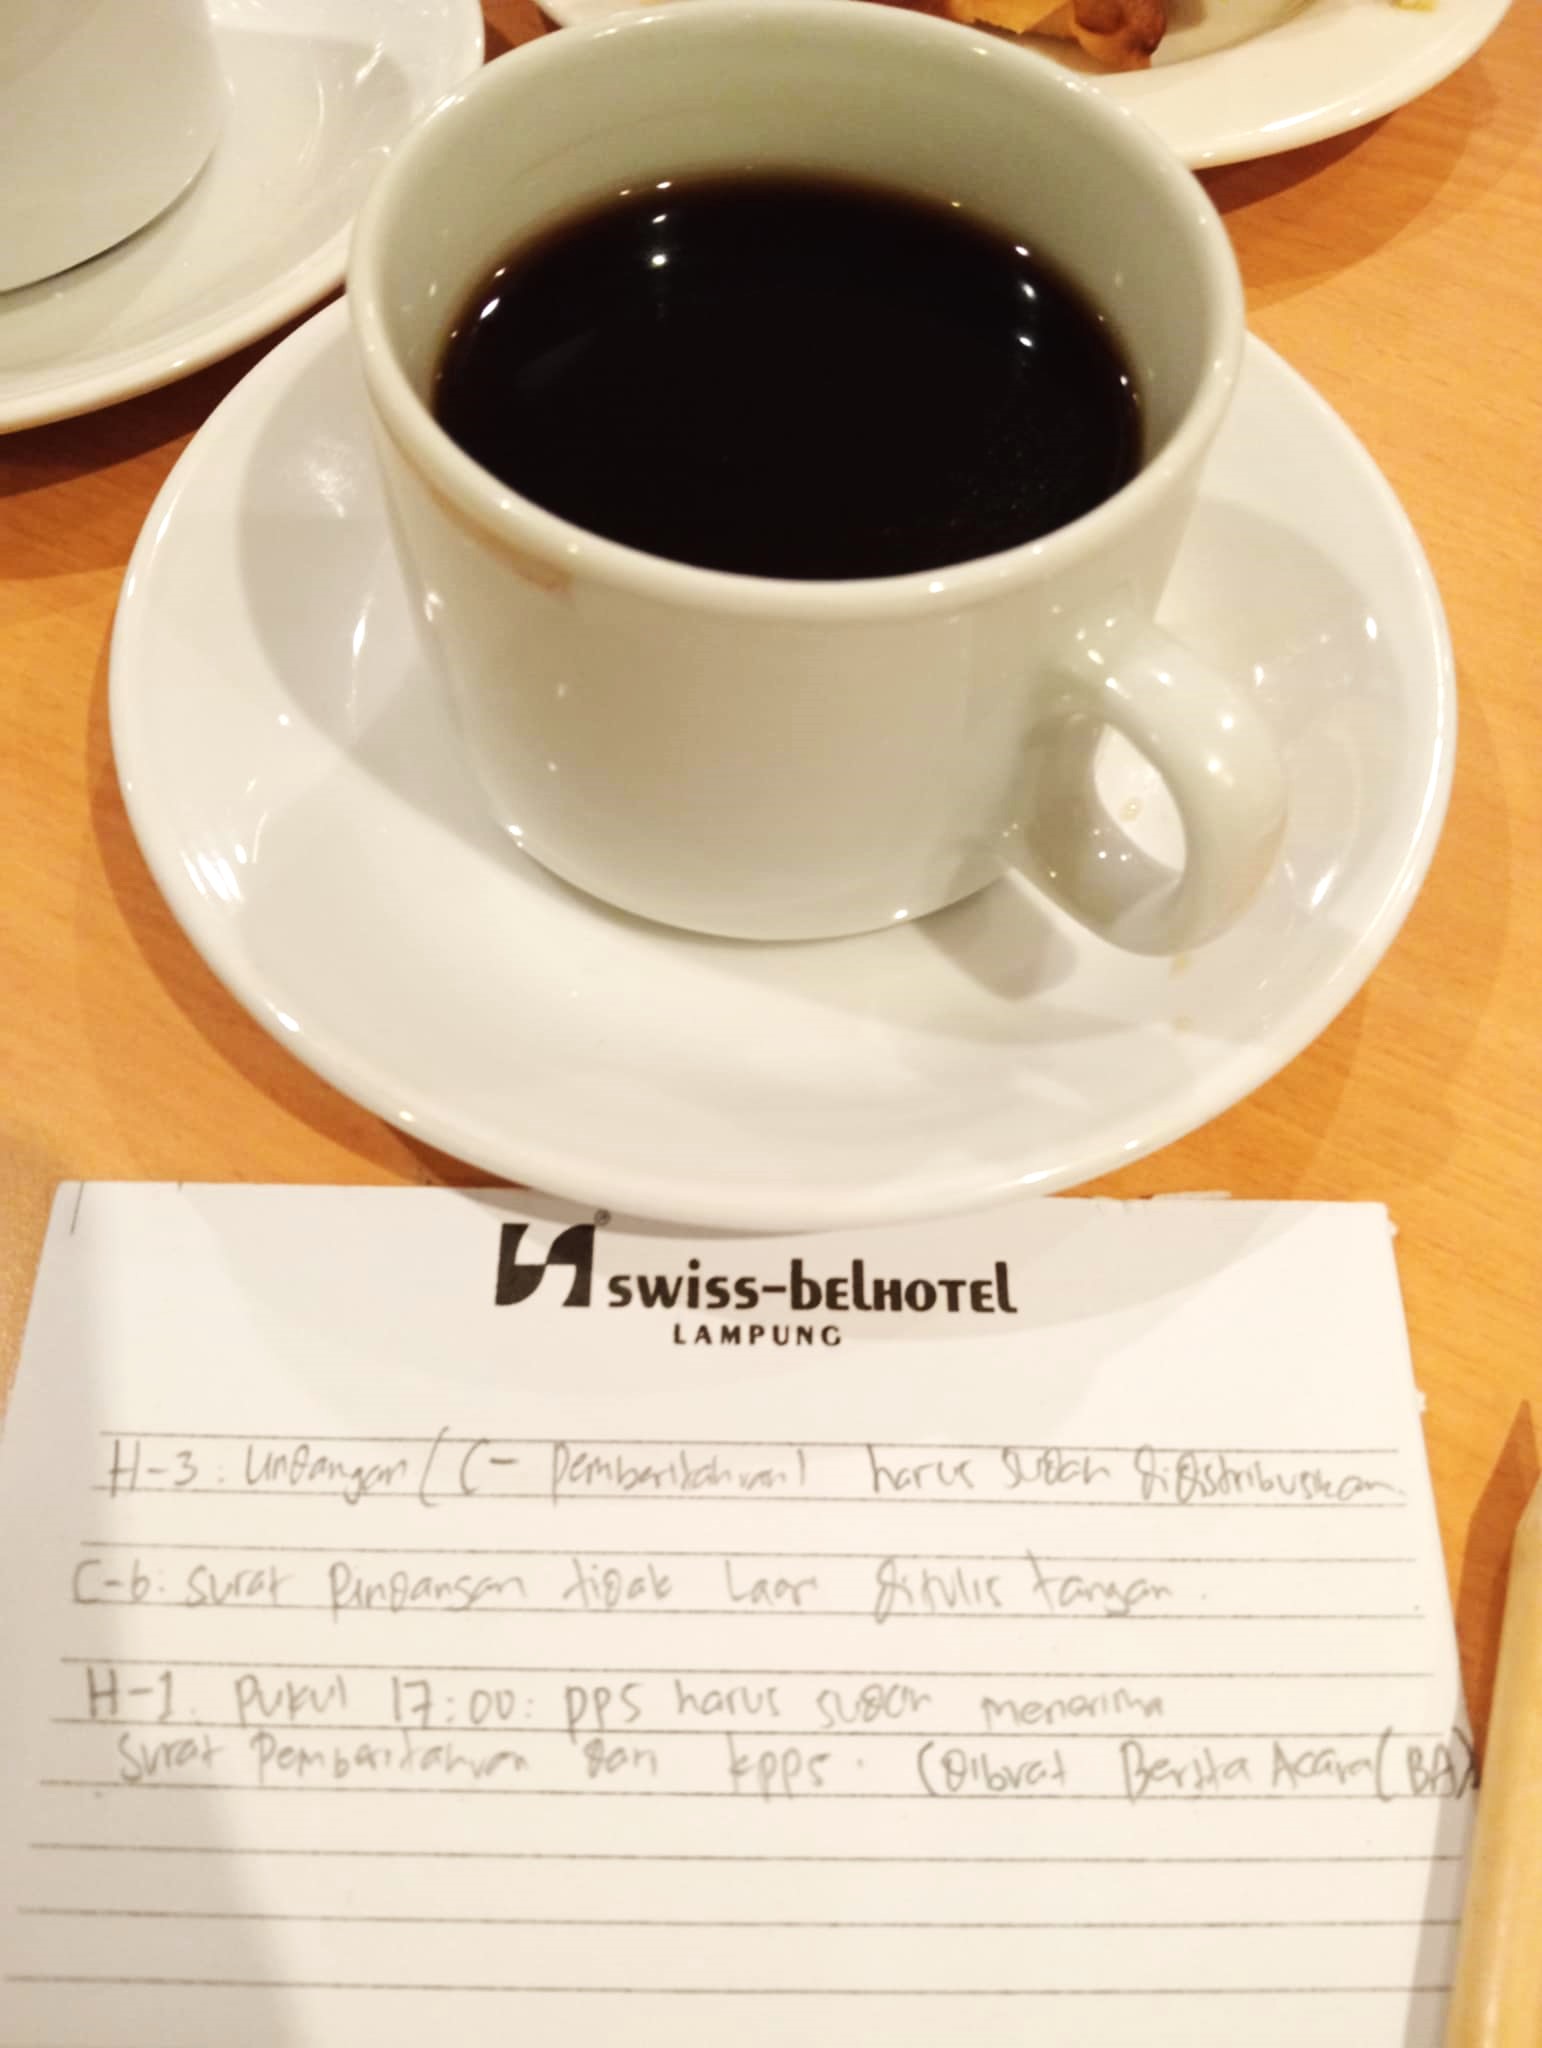 swiss-belHOTEL
LAMPUNG
H-3: Undangan (C- Pemberitahuan) harus sudah didistribusikan.
C-6: Surat Pindangan tidak lagi ditulis tangan.
H-1. Pukul 17:00: PPS harus sudah menerima
Surat Pemberitahuan dan kpps. (Dibuat Berita Acara (BA)